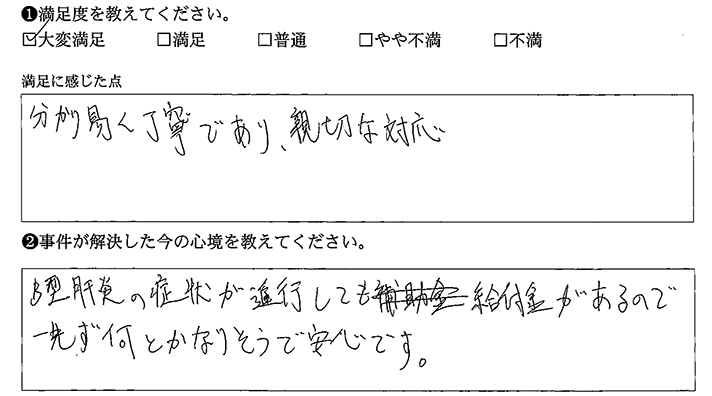 ❶満足度を教えてください。
☑大変満足 □満足 □普通 □やや不満 □不満
満足に感じた点
分かり易く丁寧であり、親切な対応
❷事件が解決した今の心境を教えてください。
B型肝炎の症状が進行しても補助金給付金があるので
一先ず何とかなりそうで安心です。